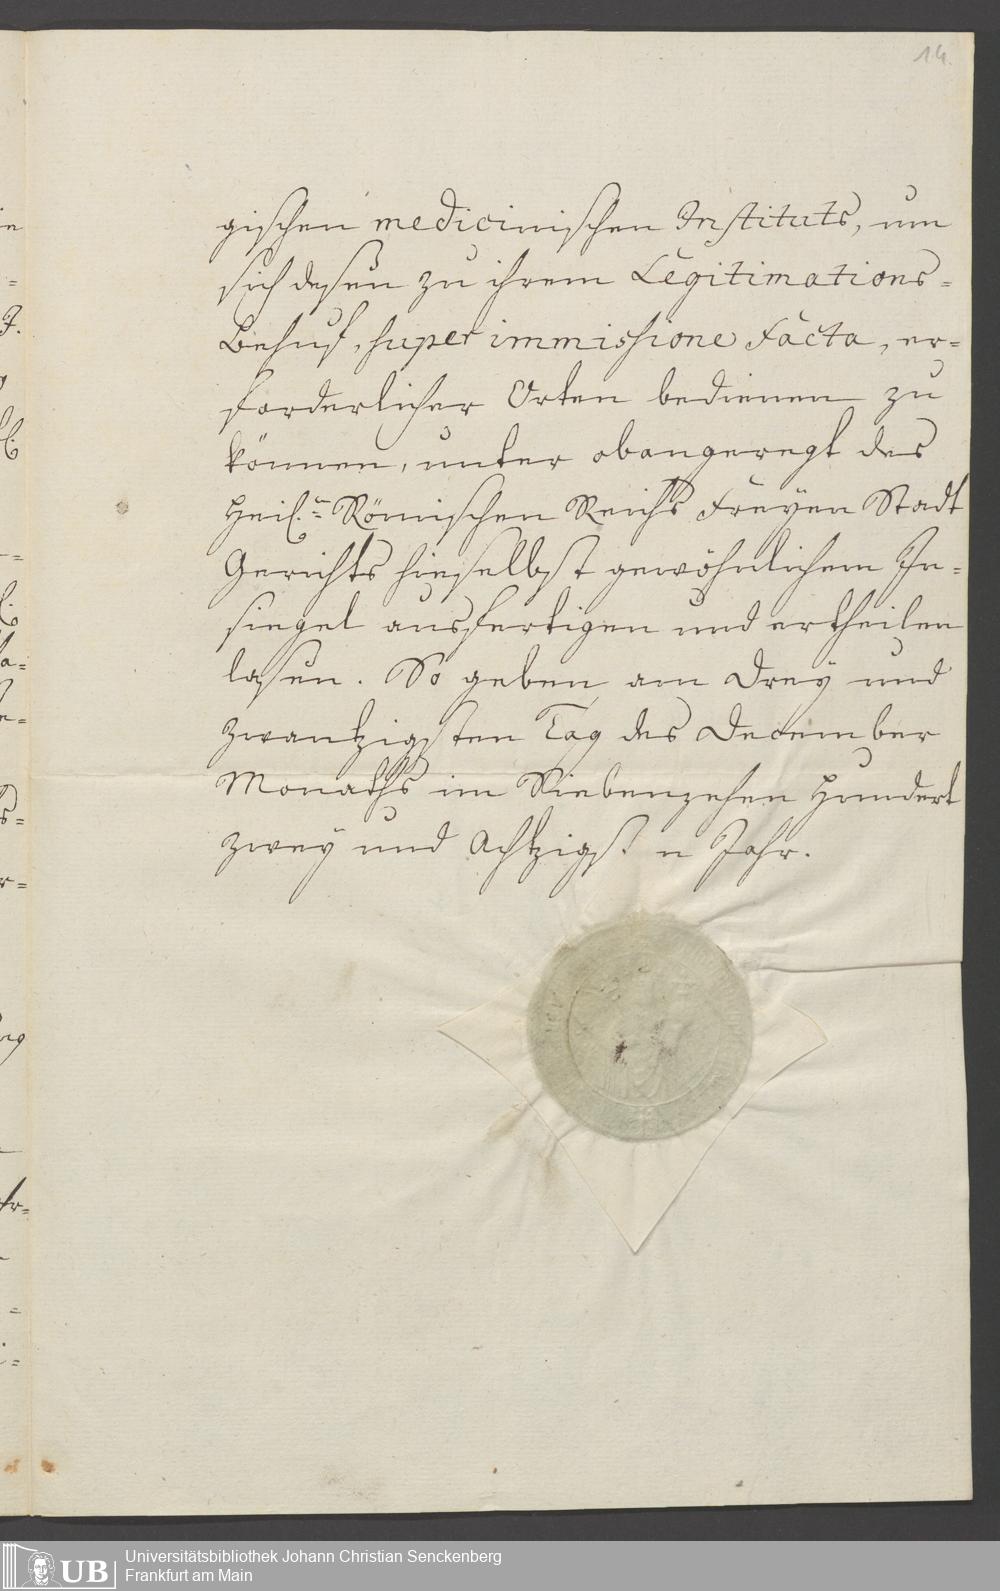 14.
gischen medicinischen Instituts, um
sich deßen zu ihrem Legitimations-
Behuf, super immissione facta, er-
forderlicher Orten bedienen zu
können, unter obangeregt des
Heil.n Römischen Reichs Freyen Stadt
Gerichts hieselbst gewöhnlichem In-
siegel ausfertigen und ertheilen
laßen. So geben am Drey und
zwantzigsten Tag des December
Monaths im Siebenzehen Hundert
zwey und Achtzigst n Jahr.
UB
Universitätsbibliothek Johann Christian Senckenberg
Frankfurt am Main